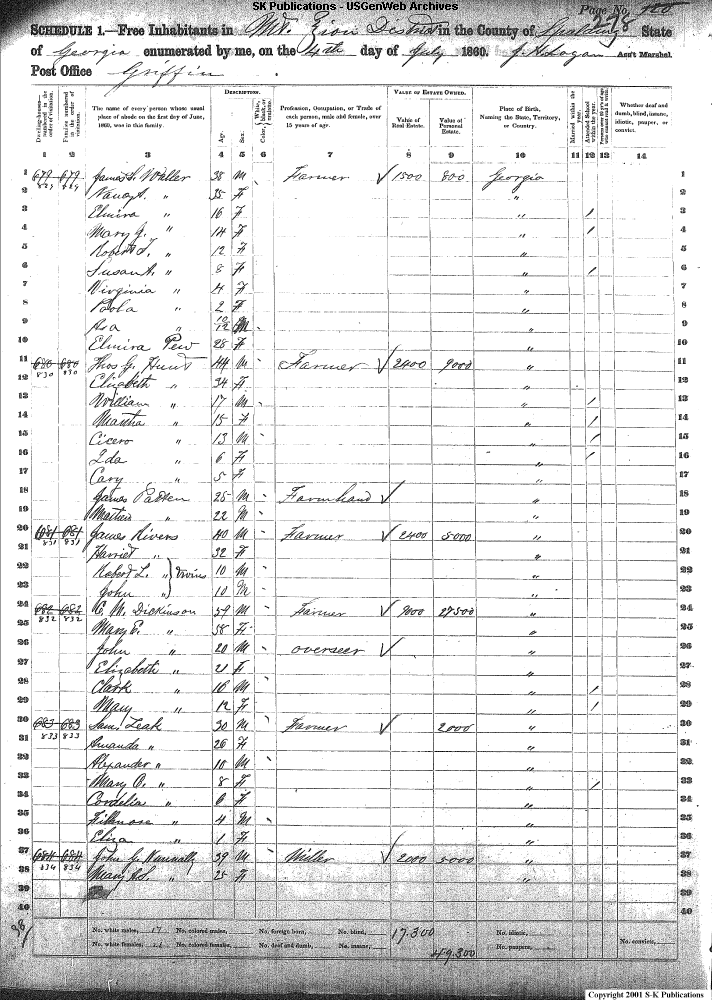 SK Publications - USGenWeb Archives
Page No. 278
SCHEDULE 1.—Free Inhabitants in Mt. Zion District in the County of Spalding State
of Georgia enumerated by me, on the 4th day of July 1860. Ass't Marshal.
Post Office Griffin
Dwelling-houses numbered in the order of visitation.
Families numbered in the order of visitation.
The name of every person whose usual place of abode on the first day of June, 1860, was in this family.
DESCRIPTION.
Age.
Sex.
Color, White, black, or mulatto.
Profession, Occupation, or Trade of each person, male and female, over 15 years of age.
VALUE OF ESTATE OWNED.
Value of Real Estate.
Value of Personal Estate.
Place of Birth, Naming the State, Territory, or Country.
Married within the year.
Attended School within the year.
Whether deaf and dumb, blind, insane, idiotic, pauper, or convict.
1 2 3 4 5 6 7 8 9 10 11 12 13 14
1 679 679 829 829 James S. Waller 38 M Farmer ✓ 1500 800 Georgia 1
2 " 35 F " 2
3 Elmira " 16 F " / 3
4 Mary J. " 14 F " / 4
5 Robert T. " 12 F " 5
6 Susan A. " 8 F " / 6
7 Virginia " 4 F " 7
8 " 2 F " 8
9 Asa " 10/12 M " 9
10 Elmira Pew 28 F " 10
11 680 680 830 830 Thos G. Hunt 44 M Farmer ✓ 2400 9000 " 11
12 Elizabeth " 34 F " 12
13 William " 17 M " / 13
14 Martha " 15 F " / 14
15 Cicero " 13 M " / 15
16 Ida " 6 F " / 16
17 Cary " 5 F " 17
18 James 25 M Farmhand ✓ " 18
19 " 22 M " 19
20 681 681 831 831 James Rivers 40 M Farmer ✓ 2400 5000 " 20
21 Harriet " 32 F " 21
22 Robert L. " } Twins 10 M " 22
23 John " } 10 M " 23
24 682 682 832 832 C. M. Dickinson 59 M Farmer ✓ 9000 27500 " 24
25 Mary E. " 58 F " 25
26 John " 20 M overseer ✓ " 26
27 Elizabeth " 21 F " 27
28 Clark " 16 M " / 28
29 Mary " 12 F " / 29
30 683 683 833 833 Saml Leak 30 M Farmer ✓ 2000 " 30
31 Amanda " 26 F " 31
32 Alexander " 10 M " 32
33 Mary C. " 8 F " / 33
34 Cordelia " 6 F " 34
35 Fillmore " 4 M " 35
36 Eliza " 1 F " 36
37 684 684 834 834 John G. Nunnally 39 M Miller ✓ 2000 5000 " 37
38 Mary " 25 F " 38
39 39
40 40
No. white males, 17 No. colored males, No. foreign born, No. blind, 17.300 No. idiotic,
No. white females, 21 No. colored females, No. deaf and dumb, No. insane, 49.300 No. paupers, No. convicts,
Copyright 2001 S-K Publications